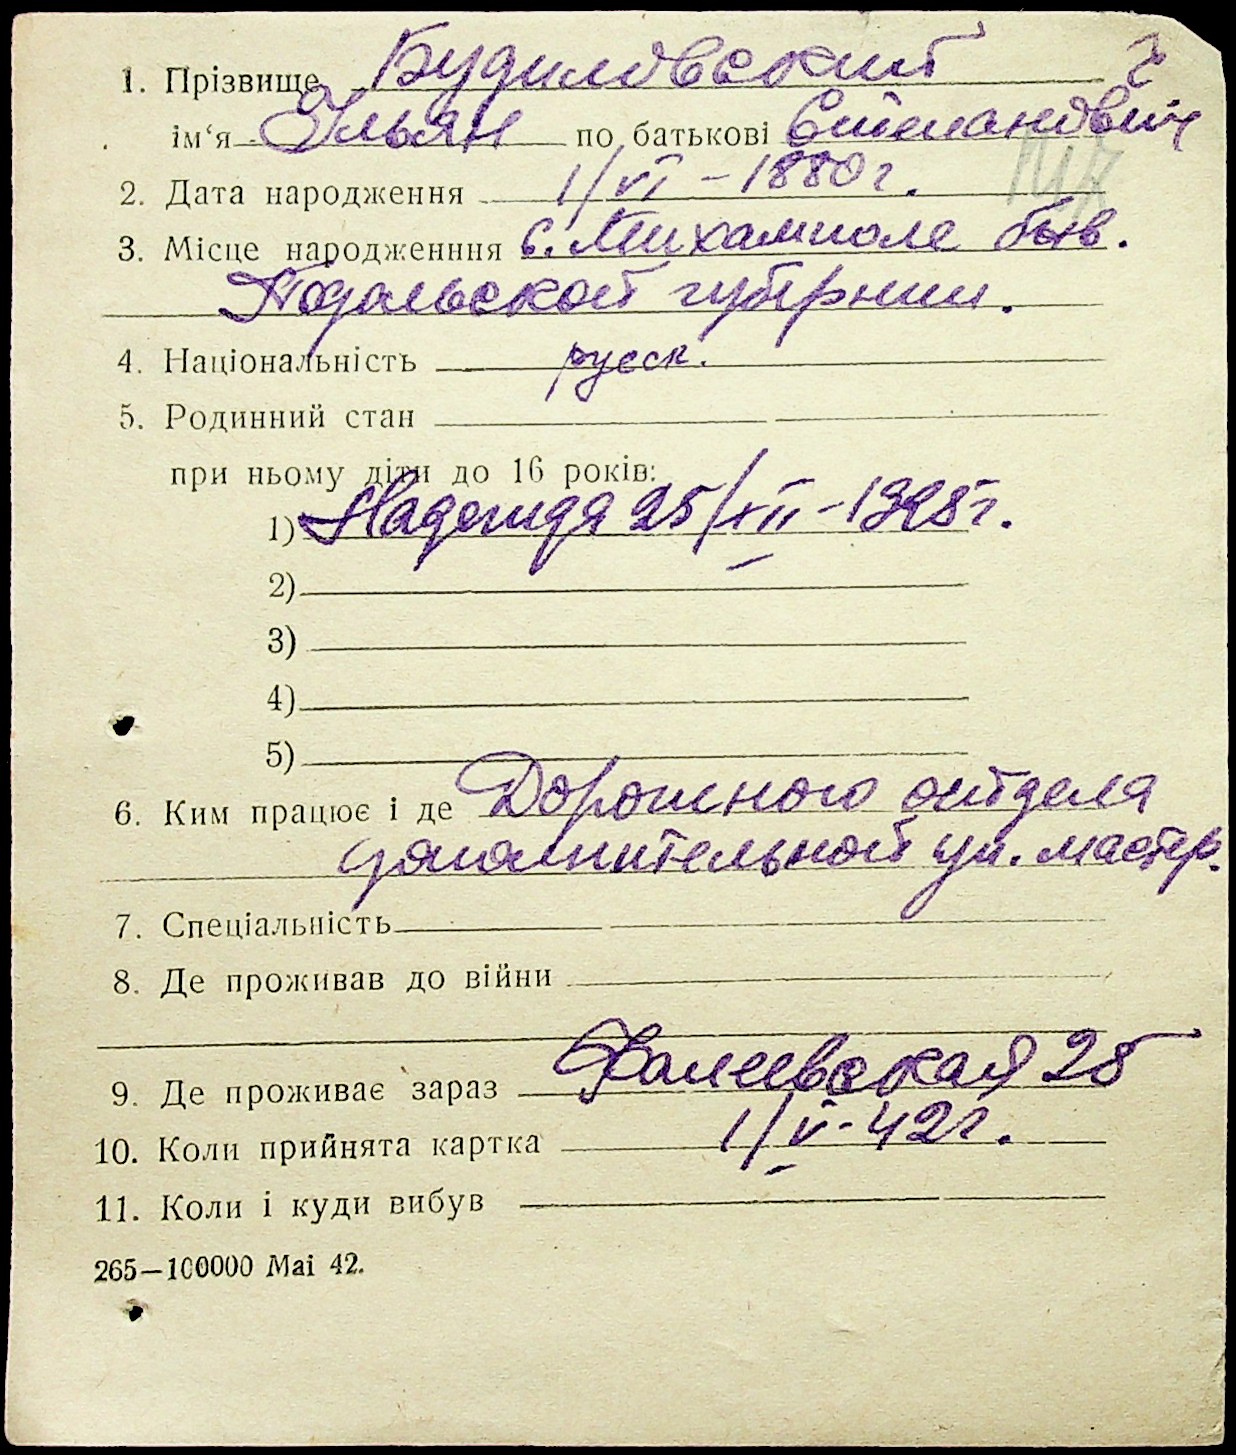 1. Прізвище Будиловский
ім‘я Ульян по батькові Степанович
2. Дата народження 1/VI – 1880 г.
3. Місце народженння с. Михамполе быв.
Подольской губернии.
4. Національність русск.
5. Родинний стан
при ньому діти до 16 років:
1) Надежда 25/XII – 1925 г.
2)
3)
4)
5)
6. Ким працює і де Дорожного отдела
уч. мастер.
7. Спеціальність
8. Де проживав до війни
9. Де проживає зараз Фалеевская 25
10. Коли прийнята картка 1/V - 42 г.
11. Коли і куди вибув
265—100000 Mai 42.